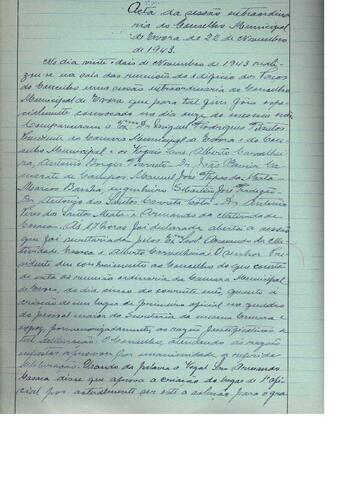 Acta da sessão extraordiná
ria do Conselho Municipal
de Evora de 22 de Novembro
de 1943.
No dia vinte e dois de Novembro de 1943 reali-
zou-se na sala das reuniões do edificio dos Paços
do Concelho uma sessão extraordinaria do Conselho
Municipal de Evora que para tal fim fôra espe-
cialmente convocado no dia onze do mesmo mês.
Compareceram o Exmo Dr. Henrique Rodrigues
Presidente da Camara Municipal de Evora e do Con-
selho Municipal e os Vogais Snrs. Alberto
António Borges Barreto, Dr. João
de Campos, Manuel José
Marcos engenheiro Sebastião José Perdigão,
Dr. António dos Santos, Dr. António
dos Santos e Armando da Natividade
As 17 horas foi declarada aberta a sessão
que foi secretariada pelos Exmos Snrs. Armando da Na-
tividade e Alberto. O senhor Pre-
sidente deu conhecimento ao Conselho do que consta
da acta da reunião ordinaria da Camara Municipal
de Evora, do dia cinco do corrente mês, quanto á
criação de um lugar de primeiro oficial no quadro
do pessoal maior da Secretaria da mesma Camara e
expoz pormenorizadamente as razões justificativas de
tal deliberação. O Conselho, atendendo ás razões
expostas aprovou por unanimidade a referida
deliberação. Usando da palavra o Vogal Snr. Armando
disse que aprova a criação do lugar de 1º ofi-
cial por actualmente ser esta a solução para o